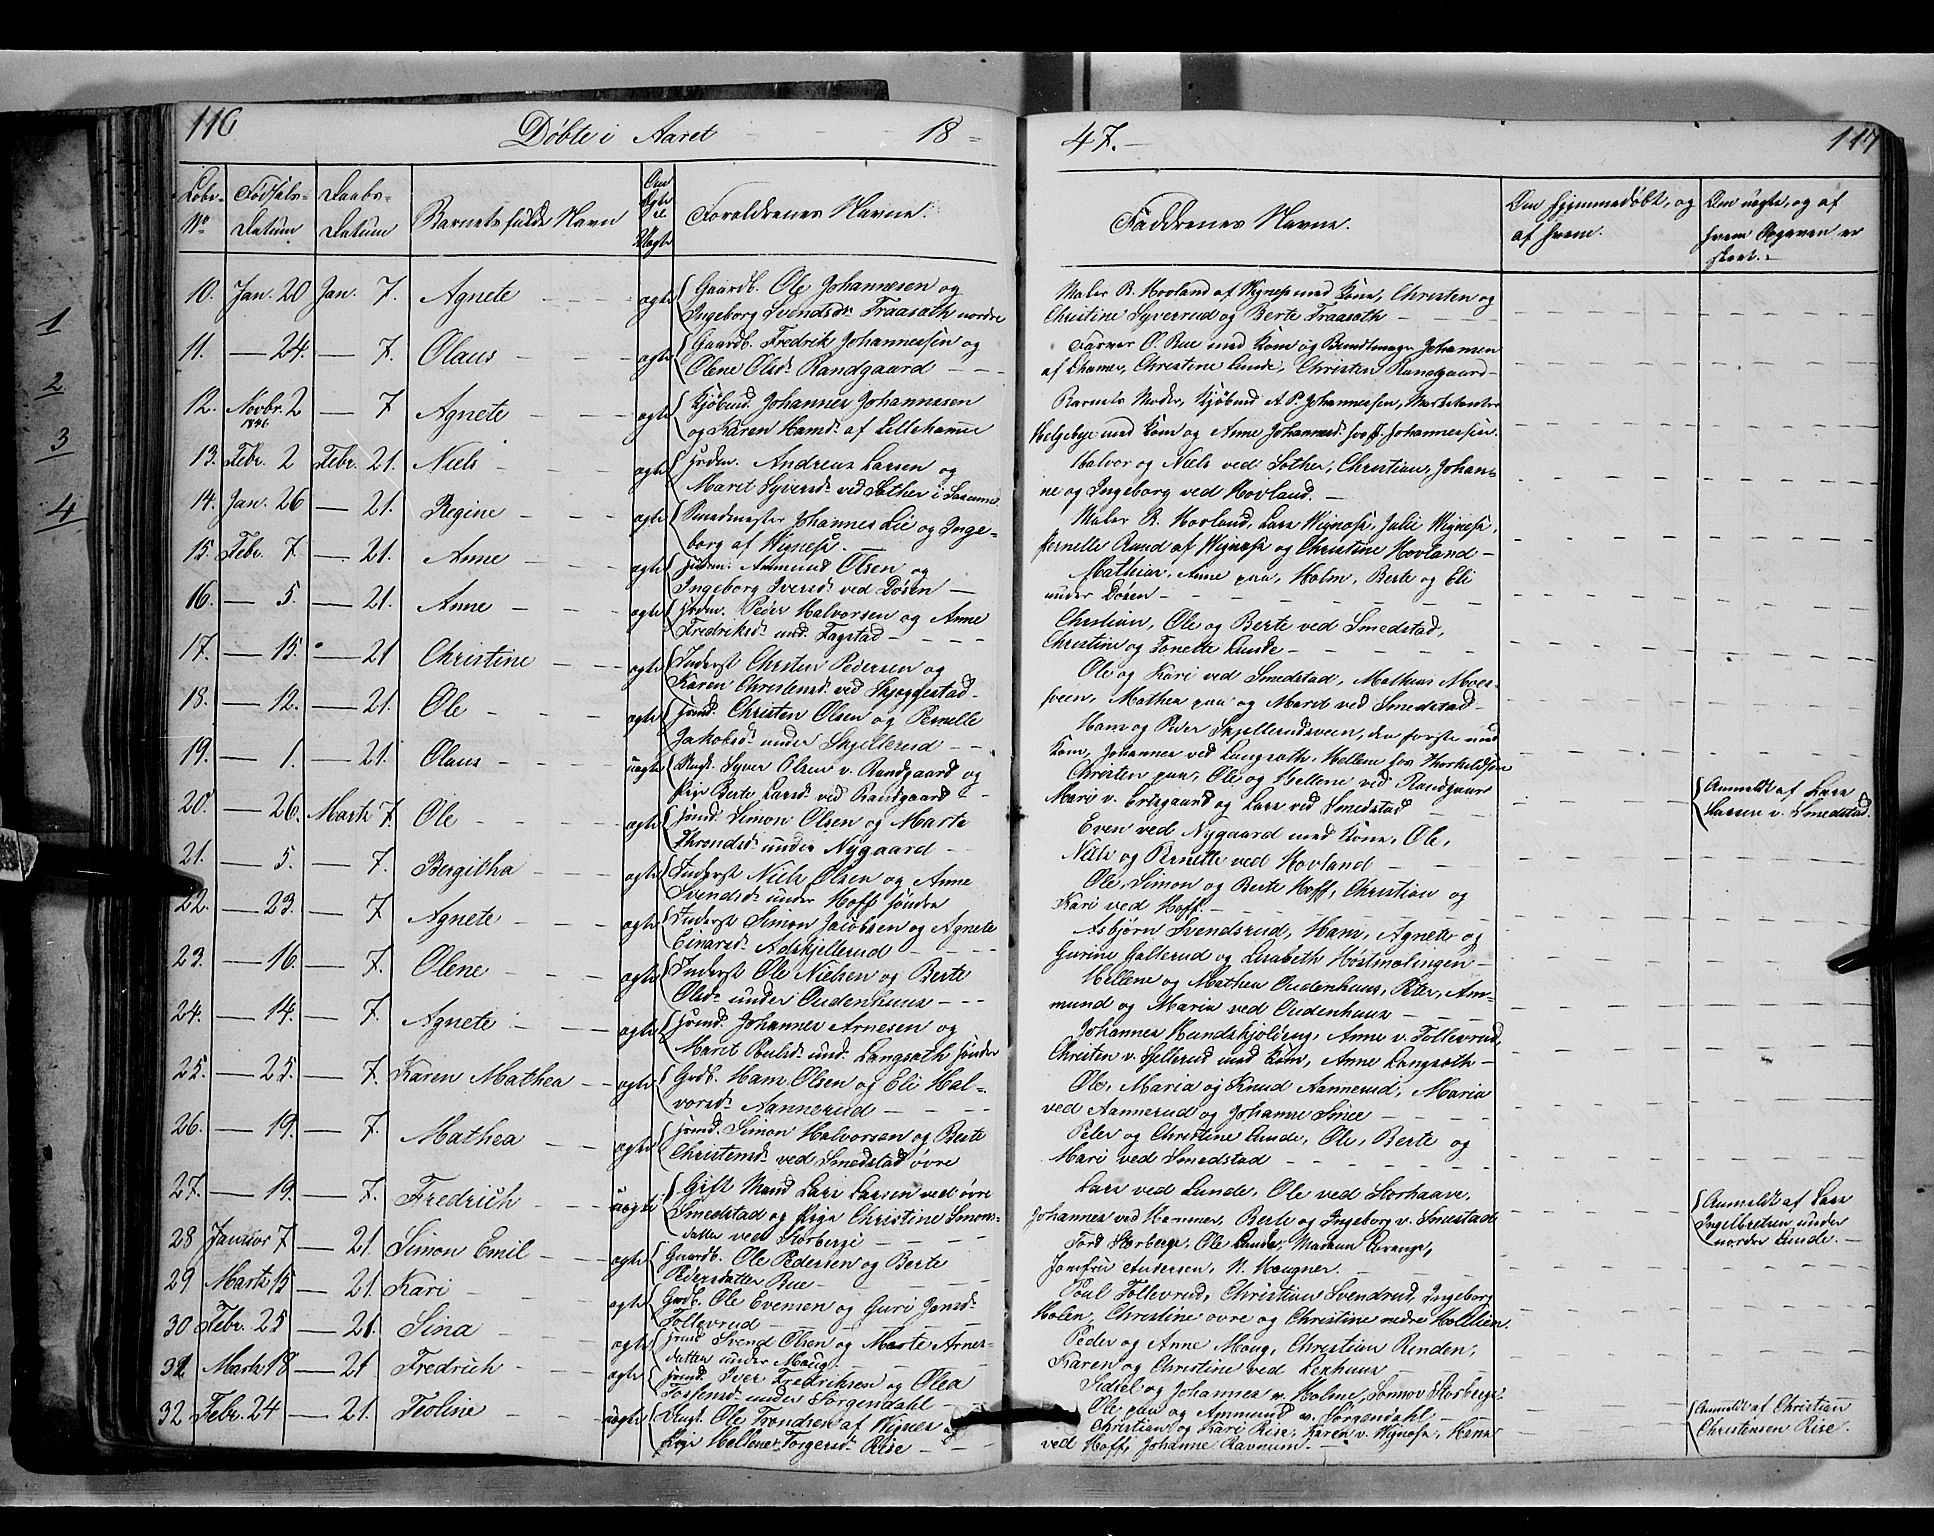 116
Døbte i Aaret 18
47.
117
Løbe- Fødsels- Daabs- Om
No Datum Datum Barnets fulde Navn Ægte el. Uægte Forældrenes Navne.
Faddrenes Navne.
Om hjemmedøbt, og af hvem.
Om uægte, og af hvem Opgaven er skeet.
10. Jan. 20 Jan. 7. Agnete ægte Gaardb. Ole Johannesen og
Ingeborg Svendsdr. Fraasøth nordre
Maler R. Hovland af Vigness med Kone, Christen og
Christine Syverrud og Berte Fraasøth
11. — 24. — 7. Olaus ægte Gaardb. Fredrik Johannessen og
Olene Olsdr. Randgaard
Farver O. Bue med Kone og Bundtmager Johansen
af Lhamer, Christine Lunde, Christen Randgaard
12. Novbr. 2 1846 — 7 Agnete ægte Kjøbmd. Johannes Johannesen
og Karen Hansdr. af Lillehamer
Barnets Moder, Kjøbmd A. P. Johannessen, Marketenter
Helgebye med Kone og Anne Johannesdr. hos P. Johannessen.
13. Febr. 2 Febr. 21. Niels ægte Huusm. Andreas Larsen og
Maret Syversdr. ved Sether i Saxumd
Halvor og Niels ved Sether, Christian, Johan-
ne og Ingeborg ved Hovland.
14. Jan. 26 — 21. Regine ægte Smedmester Johannes Lie og Inge-
borg af Vigness.
Maler R. Hovland, Lars Vigness, Julie Vigness,
Pernelle Ruud af Vigness og Christine Hovland
15. Febr. 7. — 21. Anne ægte Huusm. Ammund Olsen og
Ingeborg Iversdr. ved Døsen
Mathias, Anne paa, Holm, Berte og Eli
under Døsen
16. — 5. — 21. Anne ægte Huusm. Peder Halvorsen og Anne
Fredriksdr. und. Fagstad
Christian, Ole og Berte ved Smedstad,
Christine og Tonette Lunde
17. — 15. — 21 Christine ægte Inderst Christen Pedersen og
Karen Christensdr. ved Skjøggestad
Ole og Kari ved Smedstad, Mathias Moe-
sveen, Mathea paa og Marit ved Smedstad
18. — 12. — 21. Ole ægte Huusmd. Christen Olsen og Pernelle
Jakobsdr. under Skjellerud
Hans og Peder Skjellerudsveen, den første med
Kone, Johannes ved Langsøth, Hellene hos Thorkildsen
19. — 1. — 21. Olaus uægte Ungk. Syver Olsen v. Randgaard og
Pige Berte Larsdr. ved Randgaard
Christen paa, Ole og Hellene ved Randgaard
Mari v. Ertsgaard og Lars ved Smedstad
Anmeldt af Lars
Larsen v. Smedstad.
20. — 26. Marts 7. Ole ægte Huusmd. Simon Olsen og Marte
Throndsdr. under Nygaard
Even ved Nygaard med Kone, Ole,
Niels og Pernelle ved Hovland
21. — 5. — 7. Bergitha ægte Inderst Niels Olsen og Anne
Svendsdr. under Hoff søndre
Ole, Simon og Berte Hoff, Christian og
Kari ved Hoff.
22. — 23. — 7 Agnete ægte Inderst Simon Jacobsen og Agnete
Einarsdr. Adskjellerud
Asbjørn Svendsrud, Hans, Agnete og
Gurine Galterud og Lisabeth Høstmælingen
23. — 16. — 7. Olene ægte Inderst Ole Nielsen og Berte
Olsdr. under Oudenhuus
Hellene og Mathea Oudenhuus, Peter, Am-
mund og Maria ved Oudenhuus
24. — 14. — 7. Agnete ægte Huusmd. Johannes Arnesen og
Maret Poulsdr. und. Langsøth søndre
Johannes Hundskjoldeng, Anne v. Tollevrud,
Christen v. Skjellerud med Kone, Anne Langsøth
25. — 25. — 7. Karen Mathea ægte Grdb. Hans Olsen og Eli Hal-
vorsdr. Aannerud
Ole, Maria og Knud Aannerud, Maria
ved Aannerud og Johanne Smee
26. — 19. — 7. Mathea ægte Huusmd. Simon Halvorsen og Berte
Christensdr. ved Smedstad øvre
Peter og Christine Lunde, Ole, Berte og
Mari ved Smedstad
27. — 19. — 7. Fredrich uægte Gift Mand Lars Larsen ved øvre
Smedstad og Pige Christine Simons-
datter ved Storberge
Lars ved Lunde, Ole ved Storhaave,
Johannes ved Hammer, Berte og Ingeborg v. Smestad
Anmeldt af Lars
Ingelbretsen under
nordre Lunde.
28 Januar 7 — 21. Simon Emil ægte Gaardb. Ole Pedersen og Berte
Pedersdatter Bue
Tord Storberge, Ole Lunde, Madam Prange,
Jomfru Andersen, N. Hougner.
29 Marts 15 — 21. Kari ægte Grdb. Ole Evensen og Guri Jonsdr.
Tollevrud
Poul Tollevrud, Christian Svendsrud, Ingeborg
Holen, Christine øvre og Christine nedre Holtlien.
30 Febr. 25 — 21. Sina ægte Huusmd. Svend Olsen og Marte Arnes-
datter under Moug
Peder og Anne Moug, Christian Renden,
Karen og Christine ved Lexhuus
31 Marts 18 — 21 Fredrich ægte Huusmd. Iver Fredriksen og Olea
Tostensdr. under Sørgendahl
Sidsel og Johannes v. Holme, Sønnøv Storberge,
Ole paa og Ammund v. Sørgendahl
32 Febr. 24 — 21. Teoline uægte Ungk. Ole Trondsen af Vignes og
Pige Hellene Torgersdr. Rise
Christian og Kari Rise, Karen v. Vigness, Hans
ved Hoff, Johanne Ravnum.
Anmeldt af Christian
Christensen Rise.
1
2
3
4